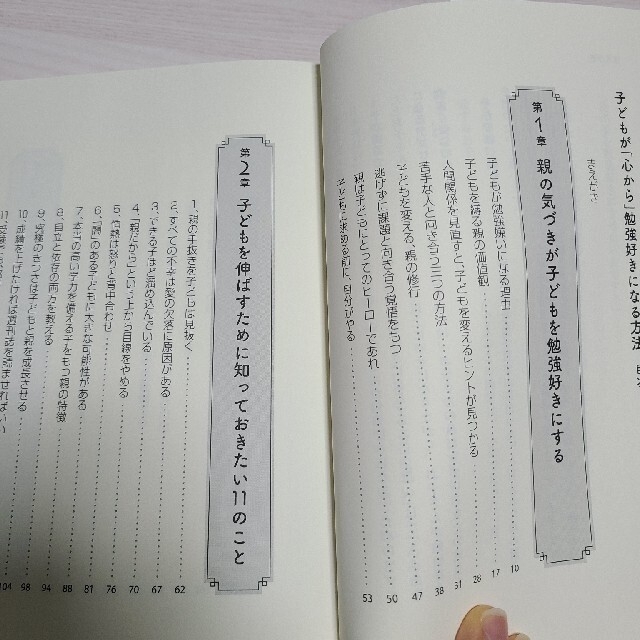 子どもが「心から」勉強好きになる方法
まえがき
第1章 親の気づきが子どもを勉強好きにする
子どもが勉強嫌いになる理由 10
子どもを縛る親の価値観 17
人間関係を見直すと、子どもを変えるヒントが見つかる 28
苦手な人と向き合う三つの方法 31
子どもを変える、親の修行 38
逃げずに課題と向き合う覚悟をもつ 47
親は子どもにとってのヒーローであれ 50
子どもに求める前に、自分がやる 53
第2章 子どもを伸ばすために知っておきたい11のこと
1、親の手抜きを子どもは見抜く 62
2、すべての不幸は愛の欠落に原因がある 67
3、できる子ほど溜め込んでいる 70
4、「親だから」という上から目線をやめる 76
5、情熱は怒りと背中合わせ 81
6、「問」のある子どもに大きな可能性がある 88
7、本当の高い学力を備える子をもつ親の特徴 88
8、自立と依存の両方を教える 94
9、究極のきつさは子どもと親を成長させる 98
10、成績を上げたければ週刊誌を読ませればいい 104